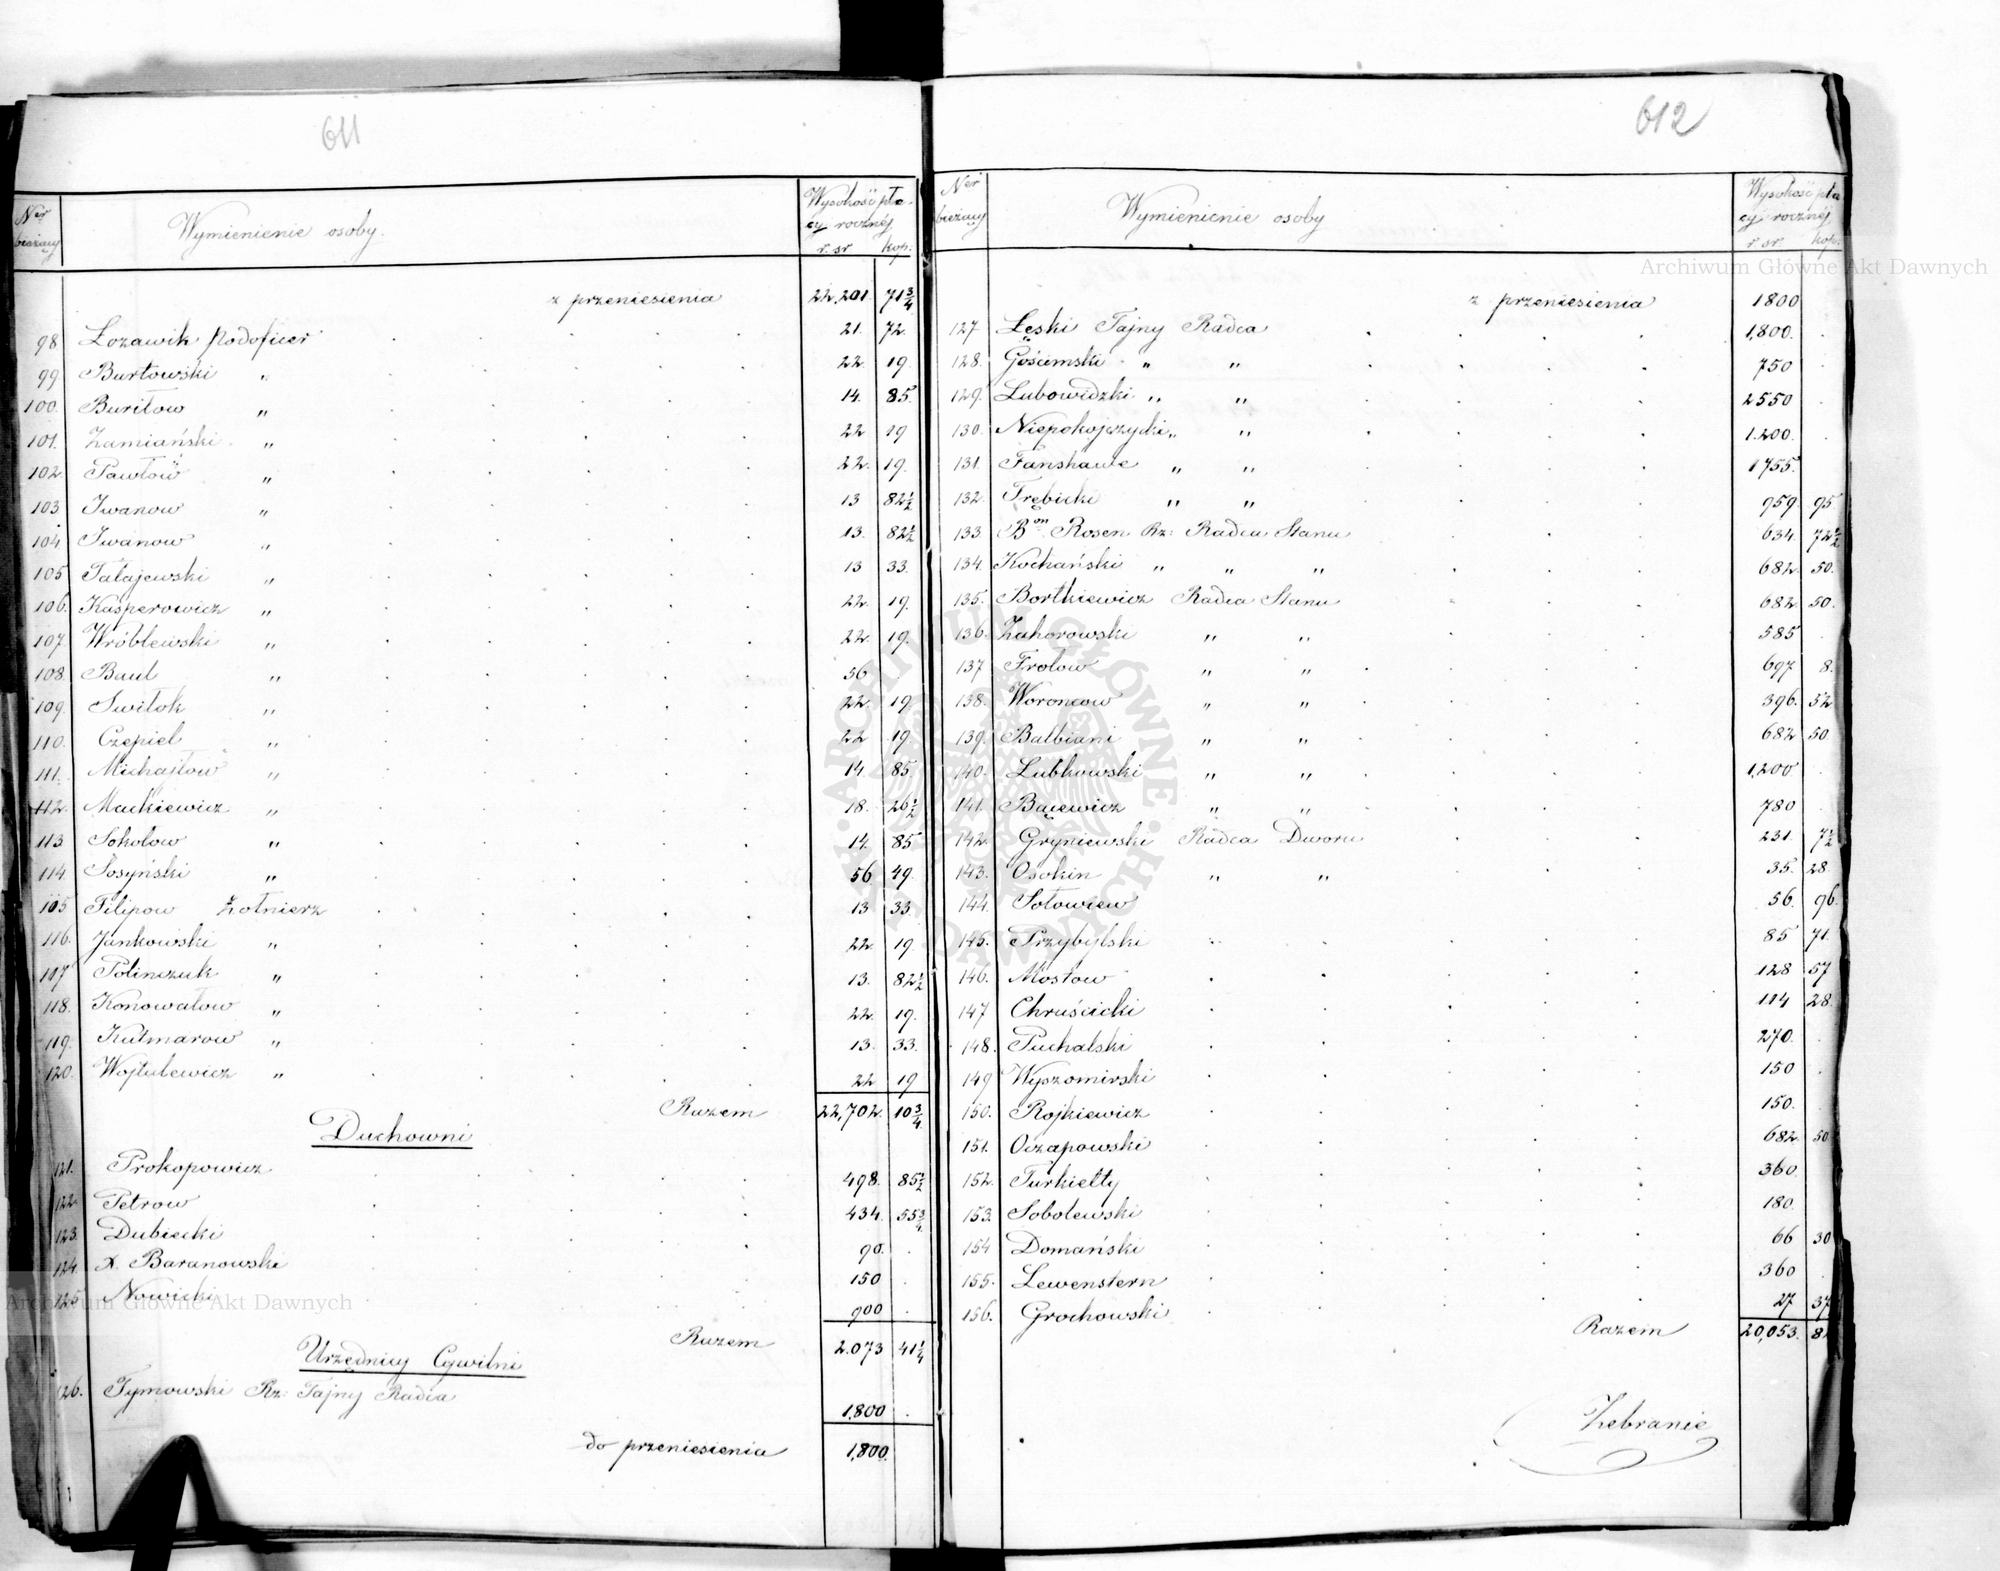 611
Ner bieżący Wymienienie osoby. Wysokość pła-
cy rocznéj
r. sr kop:
z przeniesienia 22,201. 71 3/4
98 Łozawik Podoficer 21. 72.
99 Burtowski " 22. 19.
100. Buritow " 14. 85.
101. Zamiański " 22 19
102 Pawłow " 22. 19.
103 Iwanow " 13 82 1/2
104 Iwanow " 13. 82 1/2
105 Tatajewski " 13 33.
106. Kasperowicz " 22. 19.
107. Wróblewski " 22. 19.
108. Baul " 56 .
109. Switok " 22. 19.
110. Czepiel " 22 19.
111. Michajłow " 14. 85.
112. Mackiewicz " 18. 26 1/2
113 Sokołow " 14. 85
114 Sosyński " 56. 49.
115 Filipow Żołnierz 13 33.
116. Jankowski " 22. 19.
117 Polinczuk " 13. 82 1/2
118. Konowałow " 22. 19.
119. Kulmarow " 13. 33.
120. Wojtulewicz " 22 19
Razem 22,702. 10 3/4
Duchowni
121. Prokopowicz 498. 85 1/2
122 Petrow 434. 55 3/4
123. Dubiecki 90. .
124. X. Baranowski 150 .
125 Nowicki 900 .
Razem 2.073 41 1/4
Urzędnicy Cywilni
126. Tymowski Rz: Tajny Radca 1,800 .
do przeniesienia 1,800.
612
Ner bieżący Wymienienie osoby Wysokość pła-
cy rocznéj
r. sr. kop:
z przeniesienia 1800
127 Łęski Tajny Radca 1,800. .
128. Gościmski " " 750 .
129. Lubowidzki " " 2550 .
130. Niepokojczycki " " 1.200. .
131. Fanshawe " " 1755.
132. Trębicki " " 959. 95.
133. Bon Rosen Rz: Radca Stanu 634. 72 1/2
134. Kochański " " " 682. 50.
135. Bortkiewicz Radca Stanu 682 50.
136. Zahorowski " " 585 .
137 Frołow " " 697 8.
138. Woroncow " " 396. 52
139. Balbiani " " 682 50
140. Lubkowski " " 1,200 .
141. Bacewicz " " 780 .
142. Gryniewski Radca Dworu 231. 7 1/2
143. Osokin " " 35. 28.
144. Sołowiew 56. 96.
145. Przybylski 85 71.
146. Mosłow 128 57
147 Chruścicki 114 28.
148. Puchalski 270. .
149 Wyszomirski 150 .
150. Rojkiewicz 150. .
151. Oczapowski 682. 50
152. Turkiełty 360
153. Sobolewski 180.
154 Domański 66 30
155. Lewenstern 360 .
156. Grochowski 27 37
Razem 20,053. 8
Zebranie
Archiwum Główne Akt Dawnych
Archiwum Główne Akt Dawnych
ARCHIWUM GŁÓWNE AKT DAWNYCH